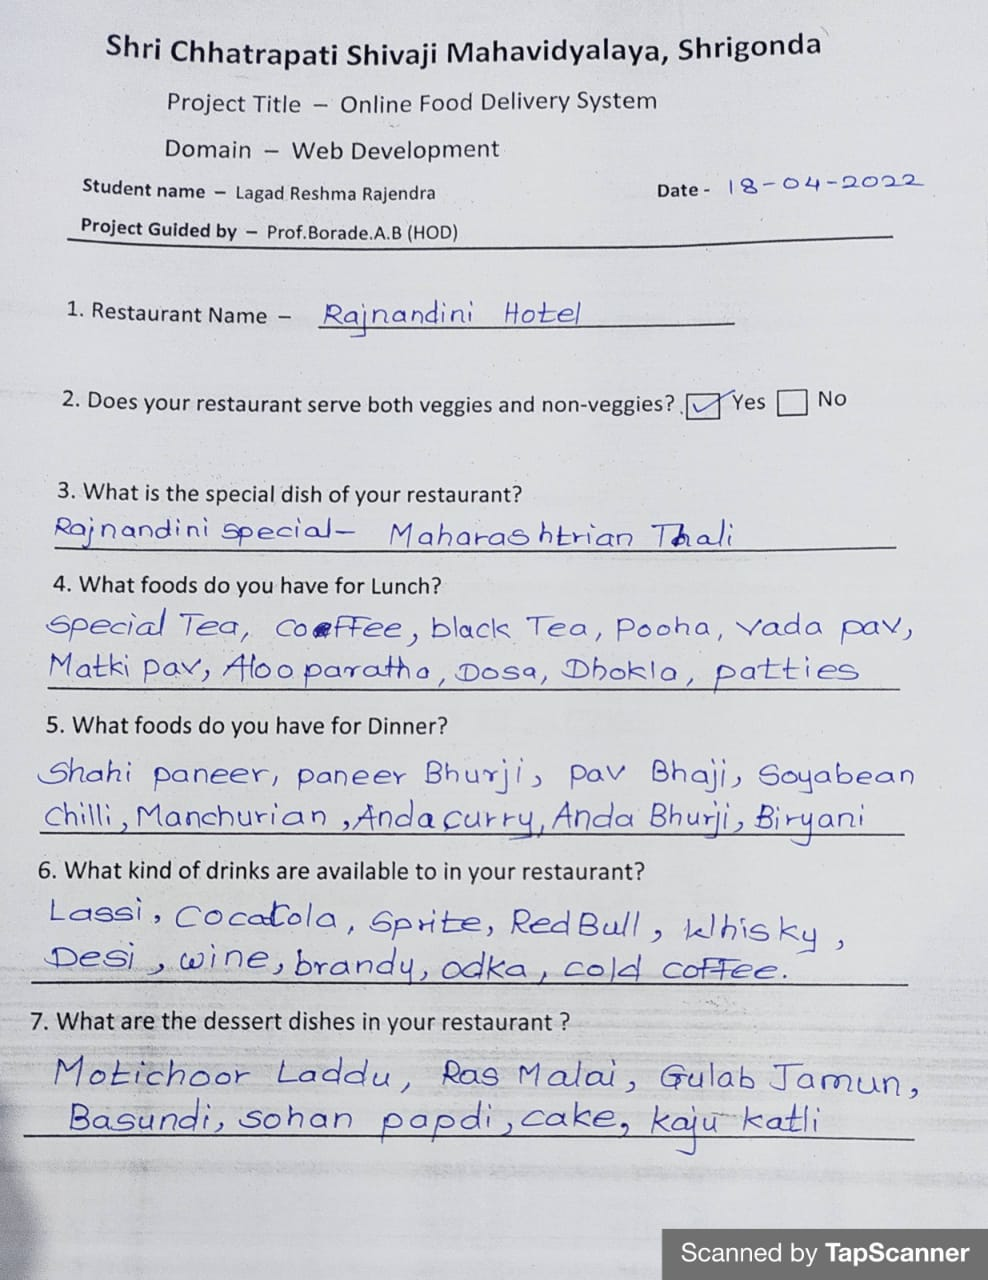 Shri Chhatrapati Shivaji Mahavidyalaya, Shrigonda
Project Title – Online Food Delivery System
Domain – Web Development
Student name – Lagad Reshma Rajendra Date - 18-04-2022
Project Guided by – Prof.Borade.A.B (HOD)
1. Restaurant Name – Rajnandini Hotel
2. Does your restaurant serve both veggies and non-veggies? Yes No
3. What is the special dish of your restaurant?
Rajnandini special- Maharashtrian Thali
4. What foods do you have for Lunch?
Special Tea, Coffee, black Tea, Pooha, vada pav,
Matki pav, Aloo paratha, Dosa, Dhokla, patties
5. What foods do you have for Dinner?
Shahi paneer, paneer Bhurji, pav Bhaji, Soyabean
Chilli, Manchurian, Anda curry, Anda Bhurji, Biryani
6. What kind of drinks are available to in your restaurant?
Lassi, CocaCola, Sprite, Red Bull, Whisky,
Desi, wine, brandy, odka, cold coffee.
7. What are the dessert dishes in your restaurant ?
Motichoor Laddu, Ras Malai, Gulab Jamun,
Basundi, sohan papdi, cake, kaju katli
Scanned by TapScanner